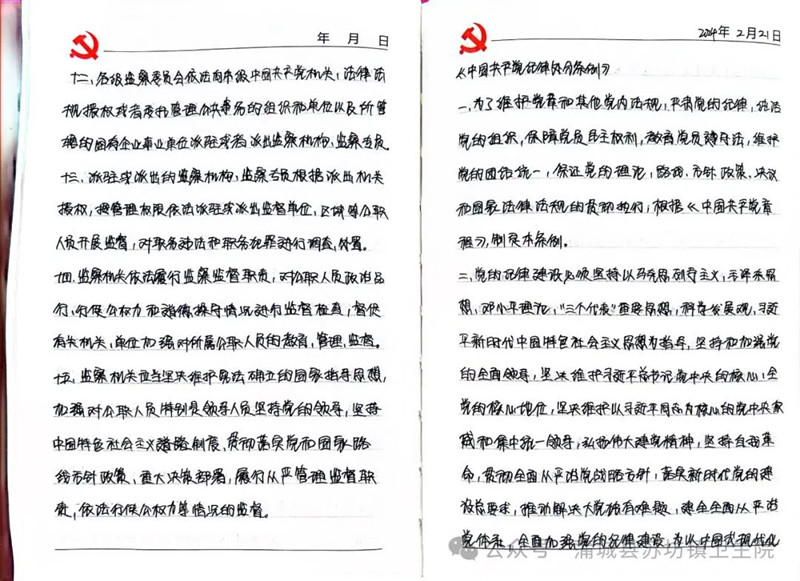 年 月 日
十二、各级监察委员会依法向本级中国共产党机关、法律法
规授权或者委托管理公共事务的组织和单位以及所管
辖的国有企业事业单位派驻或者派出监察机构、监察专员。
十三、派驻或派出的监察机构、监察专员根据派出机关
授权，按管理权限依法派驻或派出监督单位、区域等公职
人员开展监督，对职务违法和职务犯罪进行调查、处置。
十四、监察机关依法履行监察监督职责，对公职人员政治品
行、行使公权力和道德操守情况进行监督检查，督促
有关机关、单位加强对所属公职人员的教育、管理、监督。
十五、监察机关应当坚决维护宪法确立的国家指导思想，
加强对公职人员特别是领导人员坚持党的领导、坚持
中国特色社会主义道路制度，贯彻落实党和国家路
线方针政策、重大决策部署，履行从严管理监督职
责，依法行使公权力等情况的监督。
2024年 2月 21日
《中国共产党纪律处分条例》
一、为了维护党章和其他党内法规，严肃党的纪律，纯洁
党的组织，保障党员民主权利，教育党员遵守法，维护
党的团结统一，保证党的理论、路线、方针、政策、决议
和国家法律法规的贯彻执行，根据《中国共产党章
程》，制定本条例。
二、党的纪律建设必须坚持以马克思列宁主义、毛泽东思
想、邓小平理论、"三个代表"重要思想、科学发展观、习近
平新时代中国特色社会主义思想为指导，坚持和加强党
的全面领导，坚决维护习近平总书记党中央的核心、全
党的核心地位，坚决维护以习近平同志为核心的党中央权
威和集中统一领导，弘扬伟大建党精神，坚持自我革
命，贯彻全面从严治党战略方针，落实新时代党的建
设总要求，推动解决大党独有难题、健全全面从严治
党体系，全面加强党的纪律建设，为以中国式现代化
公众号 蒲城县苏坊镇卫生院